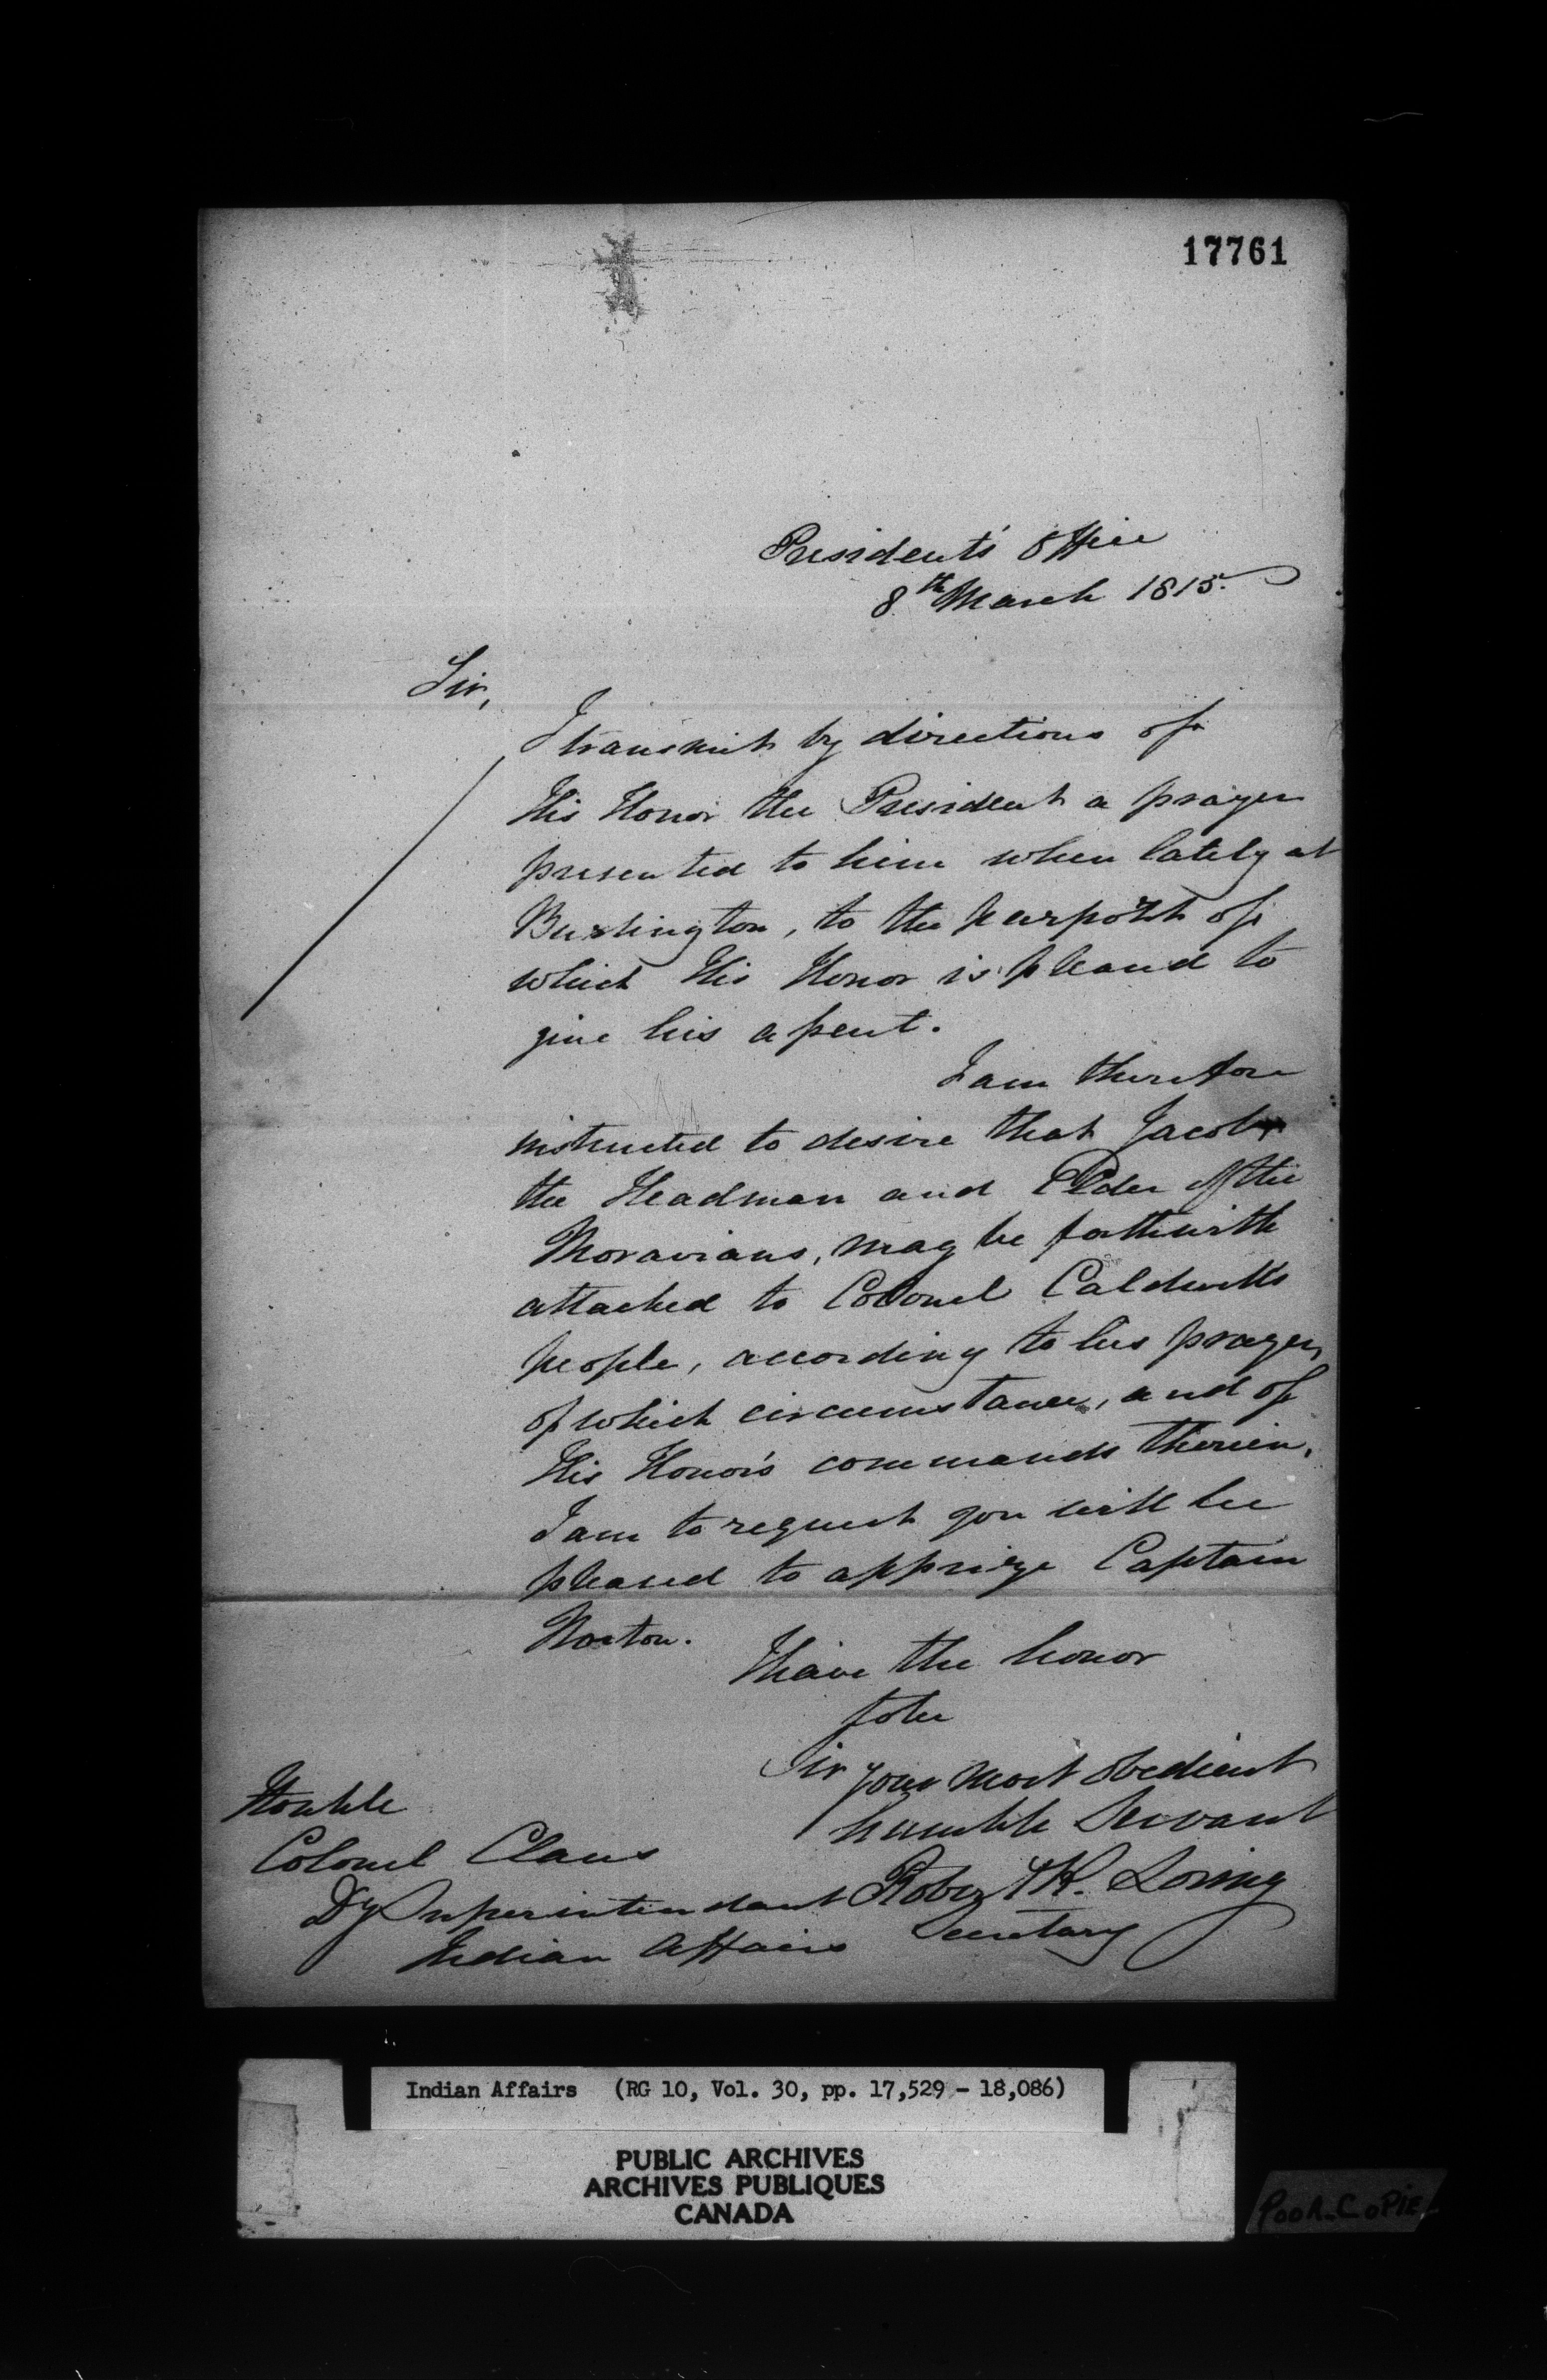 17761
Presidents' Office
8th March 1815.
Sir,
I transmit by directions of
His Honor the President a prayer
presented to him when lately at
Burlington, to the purport of
which His Honor is pleased to
give his assent.
I am therefore
instructed to desire that Jacob
the Headman and Elder of the
Moravians, may be forthwith
attached to Colonel Caldwell's
people, according to his prayer,
of which circumstance, and of
His Honor's commands therein,
I am to request you will be
pleased to apprize Captain
Norton.
I have the honor
to be
Sir your most obedient
humble Servant
Robert R. Loring
Secretary
Honble
Colonel Claus
Dy Superintendant
Indian Affairs
Indian Affairs (RG 10, Vol. 30, pp. 17,529 - 18,086)
PUBLIC ARCHIVES
ARCHIVES PUBLIQUES
CANADA
POOR COPIE